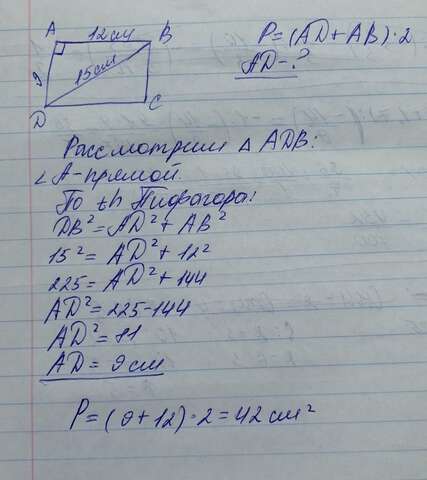 A 12см B
P=(AD+AB)·2
AD-?
9
15см
D
C
Рассмотрим △ ADB:
∠A-прямой
По th Пифагора:
DB²=AD²+AB²
15²=AD²+12²
225=AD²+144
AD²=225-144
AD²=81
AD=9см
P=(9+12)·2=42см²